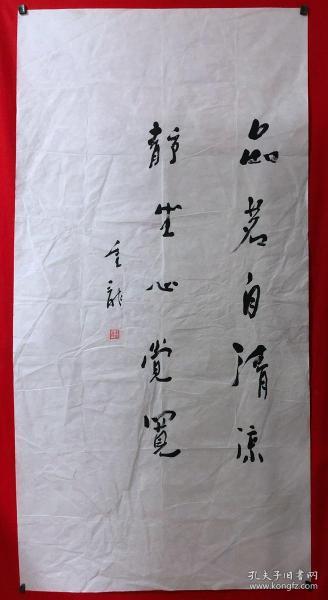 品茗自清凉
静坐心觉宽
重龙
孔夫子旧书网
www.kongfz.com